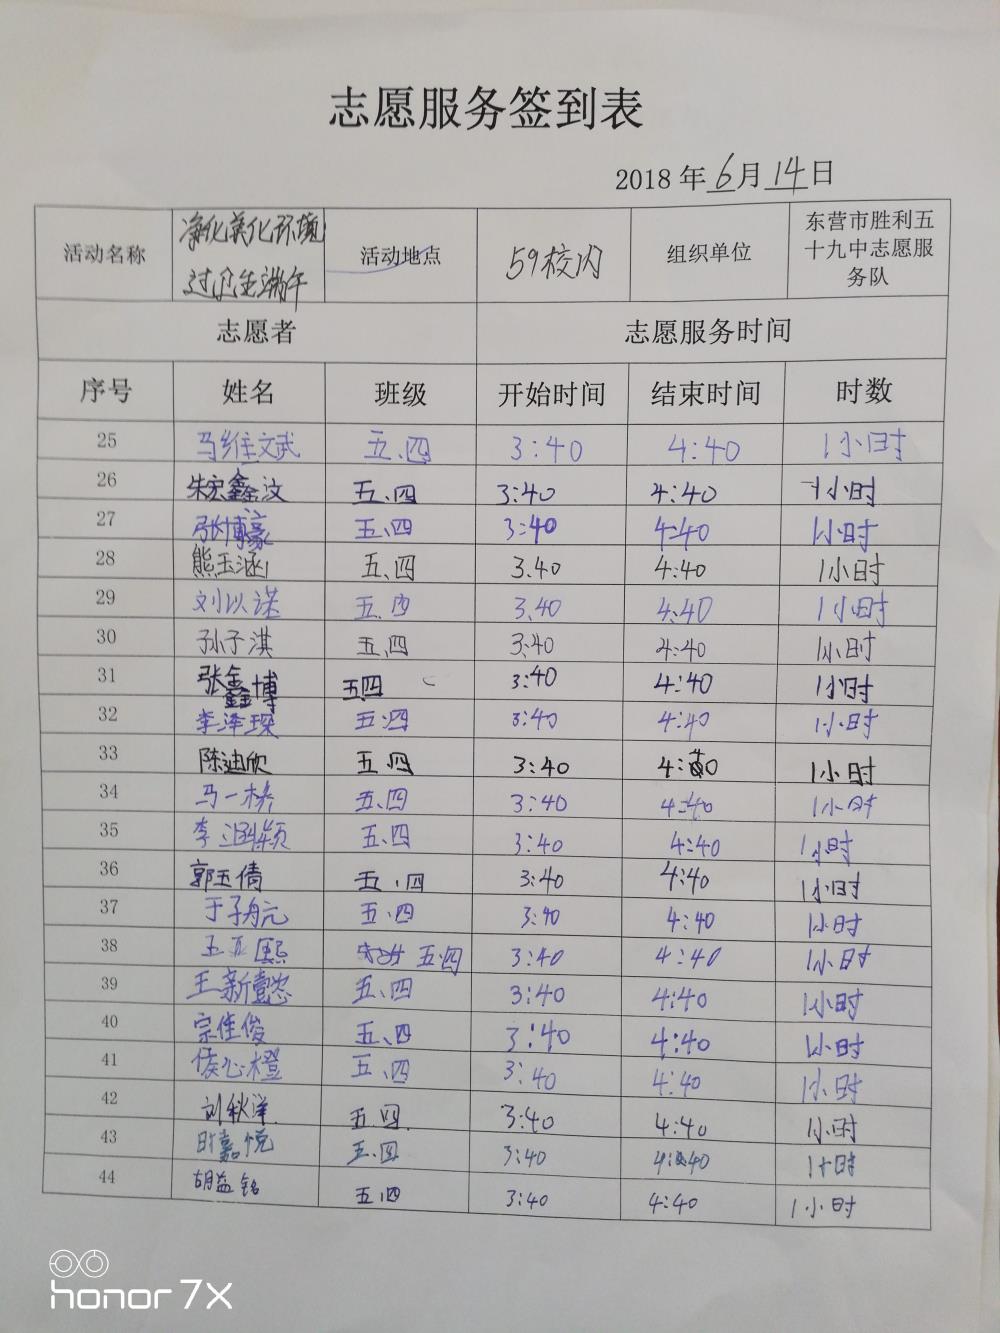 志愿服务签到表
2018 年 6 月 14 日
活动名称 净化美化环境 过卫生端午 活动地点 59校内 组织单位 东营市胜利五十九中志愿服务队
志愿者 志愿服务时间
序号 姓名 班级 开始时间 结束时间 时数
25 马维文武 五.四 3:40 4:40 1小时
26 朱宏鑫汶 五.四 3:40 4:40 1小时
27 张博豪 五.四 3:40 4:40 1小时
28 熊玉涵 五.四 3.40 4:40 1小时
29 刘以诺 五.四 3.40 4:40 1小时
30 孙子淇 五.四 3:40 4:40 1小时
31 张鑫博 五四 3:40 4:40 1小时
32 李泽琛 五.四 3:40 4:40 1小时
33 陈迪欣 五.四 3:40 4:40 1小时
34 马一 五.四 3:40 4:40 1小时
35 李 颖 五.四 3:40 4:40 1小时
36 郭玉倩 五.四 3:40 4:40 1小时
37 于子航 五.四 3:40 4:40 1小时
38 熙 五.四 3:40 4:40 1小时
39 王新懿 五.四 3:40 4:40 1小时
40 宗佳俊 五.四 3:40 4:40 1小时
41 侯心橙 五.四 3:40 4:40 1小时
42 刘秋洋 五.四 3:40 4:40 1小时
43 时嘉悦 五.四 3:40 4:40 1小时
44 胡益铭 五.四 3:40 4:40 1小时
honor 7X